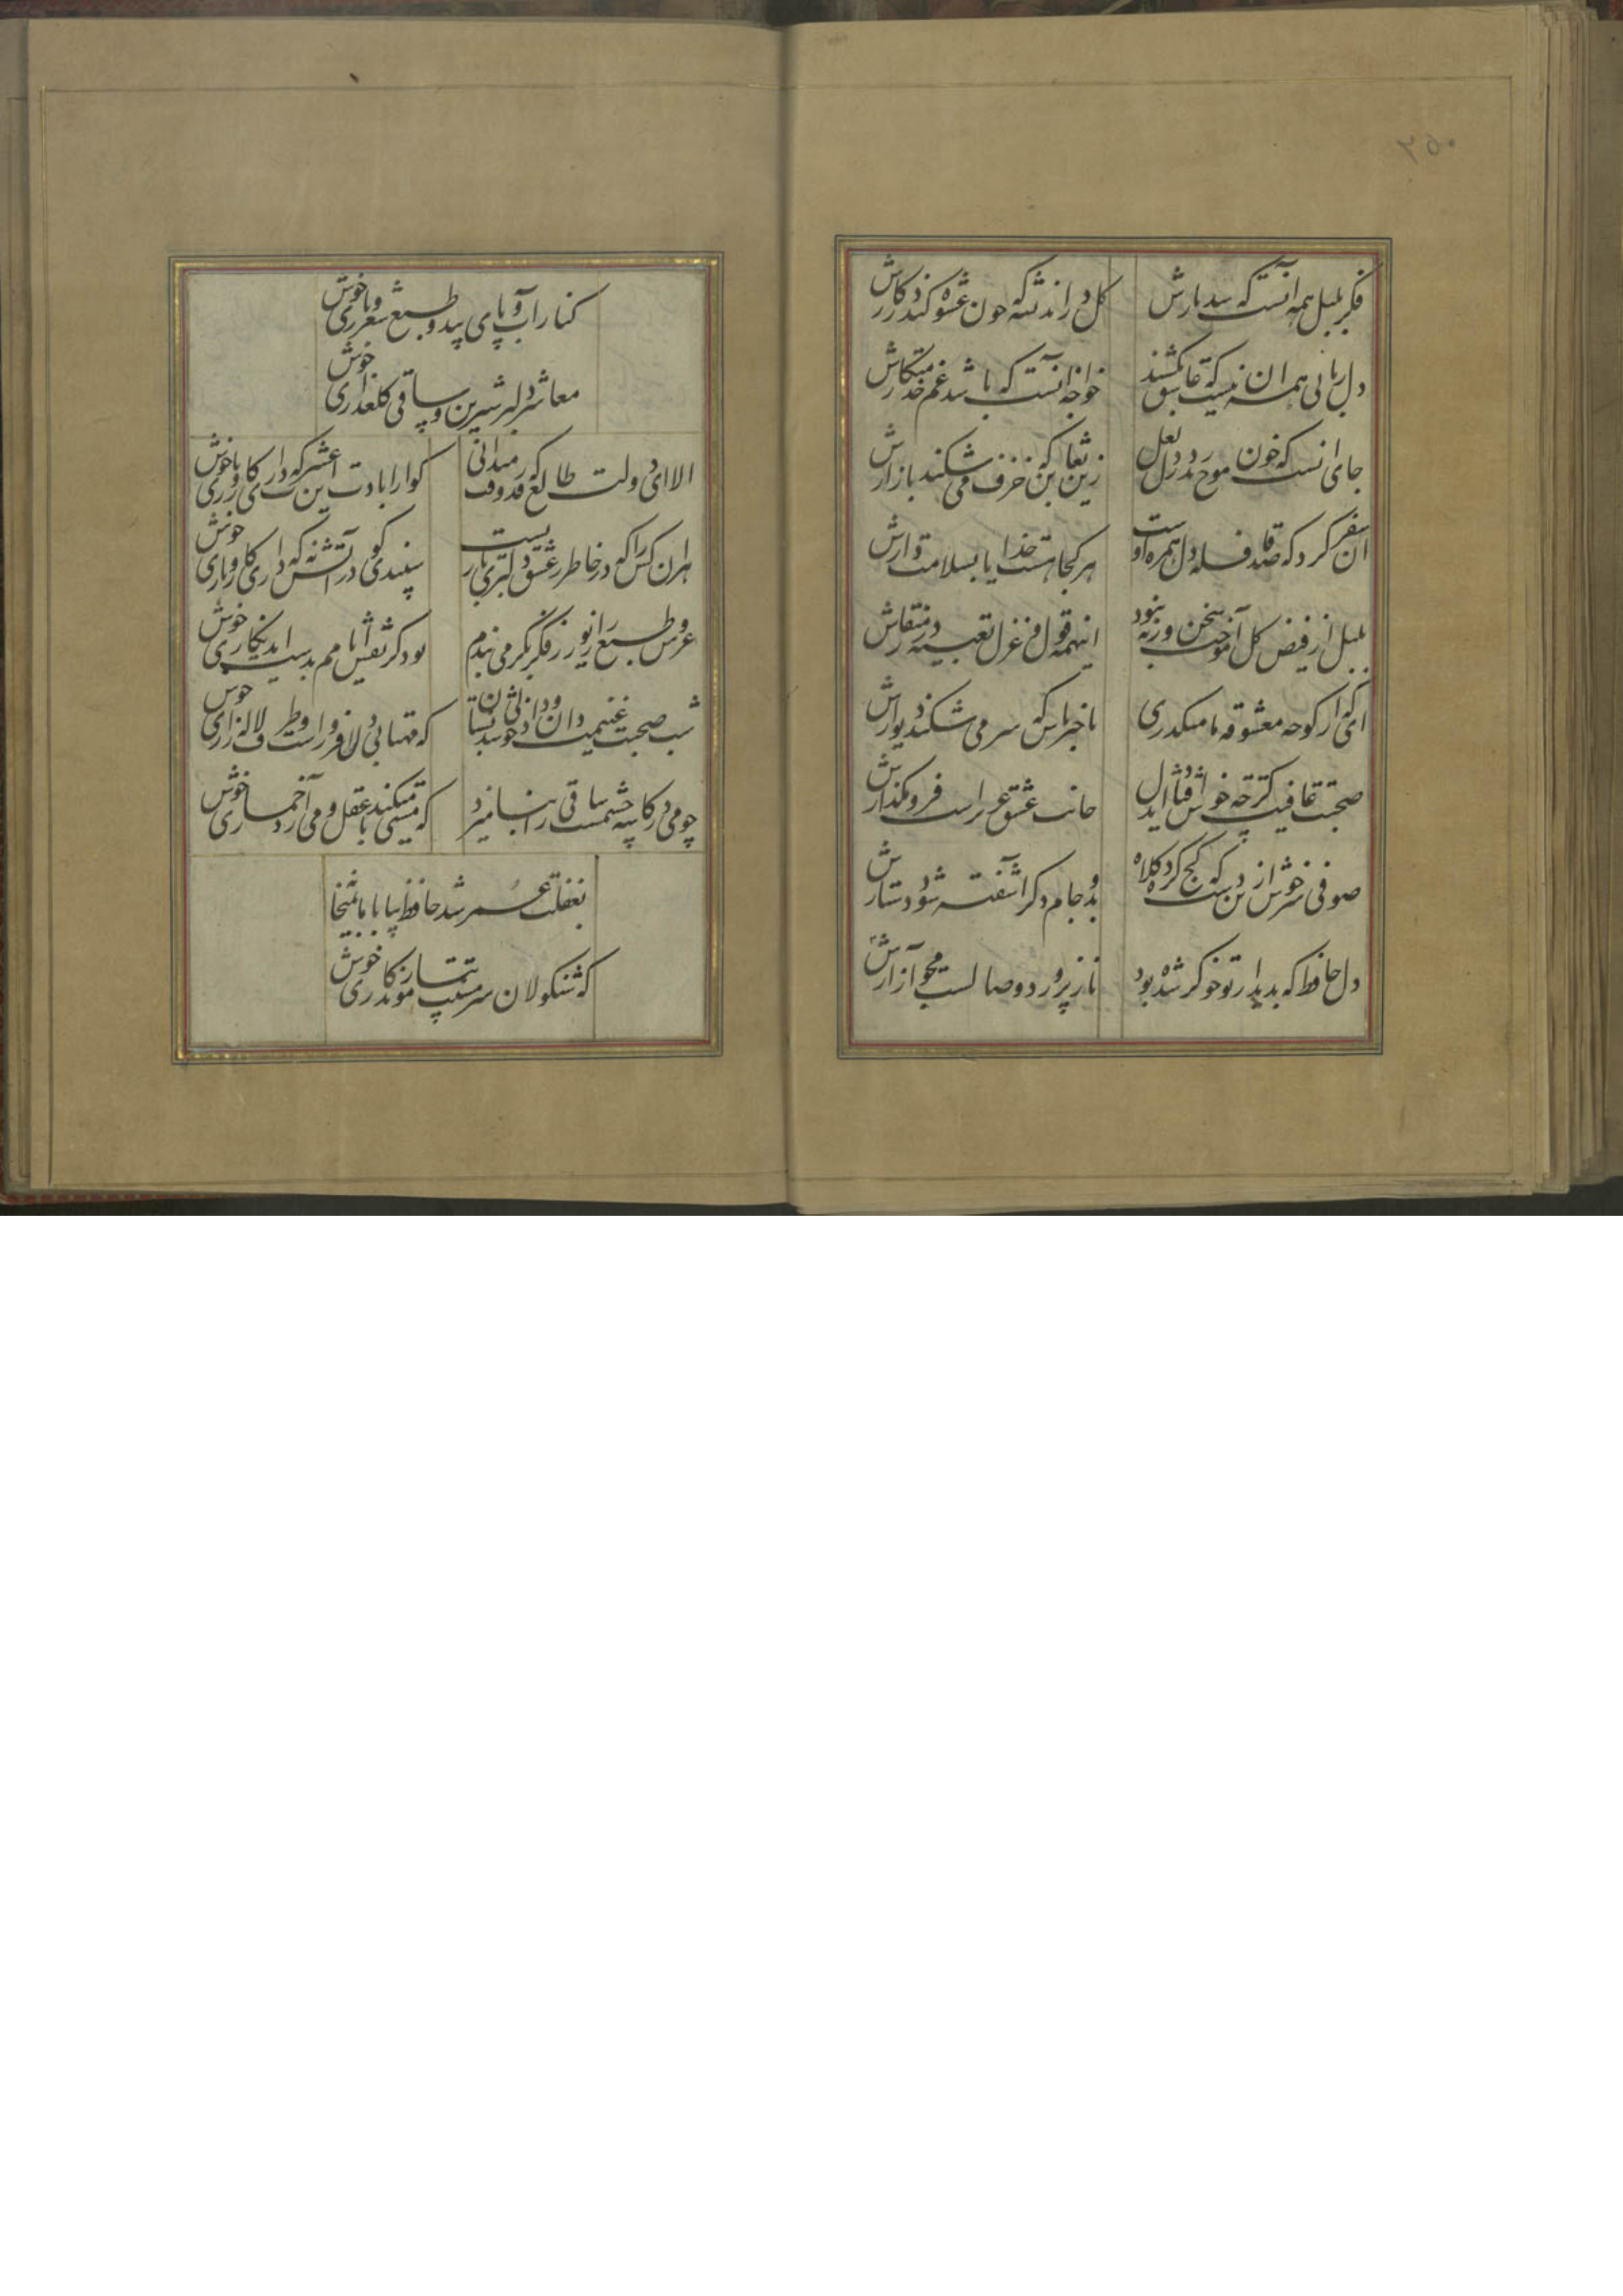 ۲۵۰
فکر بلبل همه آنست که شد یارش
کل در اندیشه که چون عشوه کند در کارش
دل ربائی همه ان نیست که عاشق بکشند
خواجه آنست که باشد غم خدمتکارش
جای انست که خون موج زند در دل لعل
زین تغابن که خزف می شکند بازارش
ان سفر کرده که صد قافله دل همره اوست
هر کجا هست خدایا بسلامت دارش
بلبل از فیض کل آموخت سخن ورنه نبود
اینهمه قول و غزل تعبیه در منقارش
ای که از کوچه معشوقه ما میکذری
باخبر باش که سر می شکند دیوارش
صحبت عافیت کرچه خوش افتاد ای دل
جانب عشق عزیز است فرو مکذارش
صوفی سرخوش ازین دست که کج کرد کلاه
بدو جام دکر آشفته شود دستارش
دل حافظ که بدیدار تو خوکر شده بود
ناز پرورد وصالست مجو آزارش
کنار اب و پای بید و طبع شعر و یاری خوش
معاشر دلبر شیرین و ساقی کلعذاری خوش
الا ای دولت طالع که قدر وقت میدانی
کوارا بادت این عشرت که داری روزکاری خوش
هر ان کس را که در خاطر ز عشق دلبری باریست
سپندی کو در آتش نه که داری کار و باری خوش
عروس طبع را زیور ز فکر بکر می بندم
بود کز نقش ایامم بدست اید نکاری خوش
شب صحبت غنیمت دان و داد خوشدلی بستان
که مهتابی دلافروز است و طرف لاله زاری خوش
چو می در کاسه چشمست ساقی را بنامیزد
که مستی میکند با عقل و می آرد خماری خوش
بغفلت عمر شد حافظ بیا با ما بمیخانه
که شنکولان سرمستت بیاموزند کاری خوش